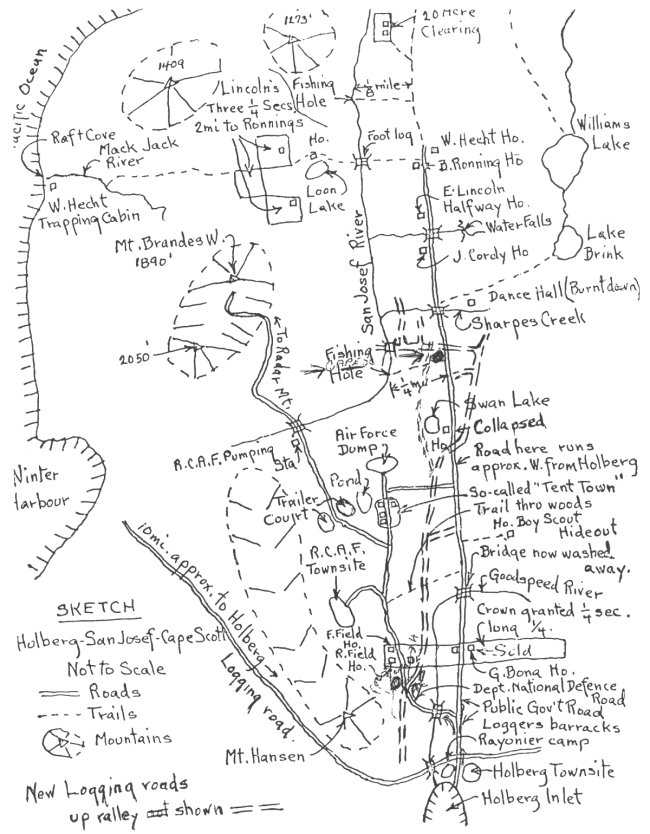 1273'
20 Acre
Clearing
Pacific Ocean
1409
Lincoln's
Three 1/4 Secs
2mi to Ronnings
Fishing
Hole
1/8 mile
Raft Cove
Mack Jack
River
Ho.
Foot log
W. Hecht Ho.
B. Ronning Ho
Williams
Lake
W. Hecht
Trapping Cabin
Loon
Lake
E. Lincoln
Halfway Ho.
Water Falls
Mt. Brandes W.
1890'
San Josef River
J. Cordy Ho
Lake
Brink
Dance Hall (Burnt down)
Sharpes Creek
2050'
To Radar Mt.
Fishing
Hole
1/4 mi
Swan Lake
Collapsed
Ho.
R.C.A.F. Pumping
Sta.
Air Force
Dump
Road here runs
approx. W. from Holberg
Winter
Harbour
Pond
Trailer
Court
So-called "Tent Town"
Trail thru woods
Ho. Boy Scout
Hideout
10mi. approx. to Holberg
R.C.A.F.
Townsite
Bridge now washed
away.
Goodspeed River
SKETCH
Holberg-San Josef-Cape Scott
Not to Scale
Roads
Trails
Mountains
Logging road
F. Field
Ho.
R. Field
Ho.
Crown granted 1/4 sec.
1 long 1/4.
Sild
G. Bona Ho.
Dept. National Defence
Road
Public Gov't Road
Loggers barracks
Rayonier camp
Mt. Hansen
Holberg Townsite
Holberg Inlet
New Logging roads
up valley not shown